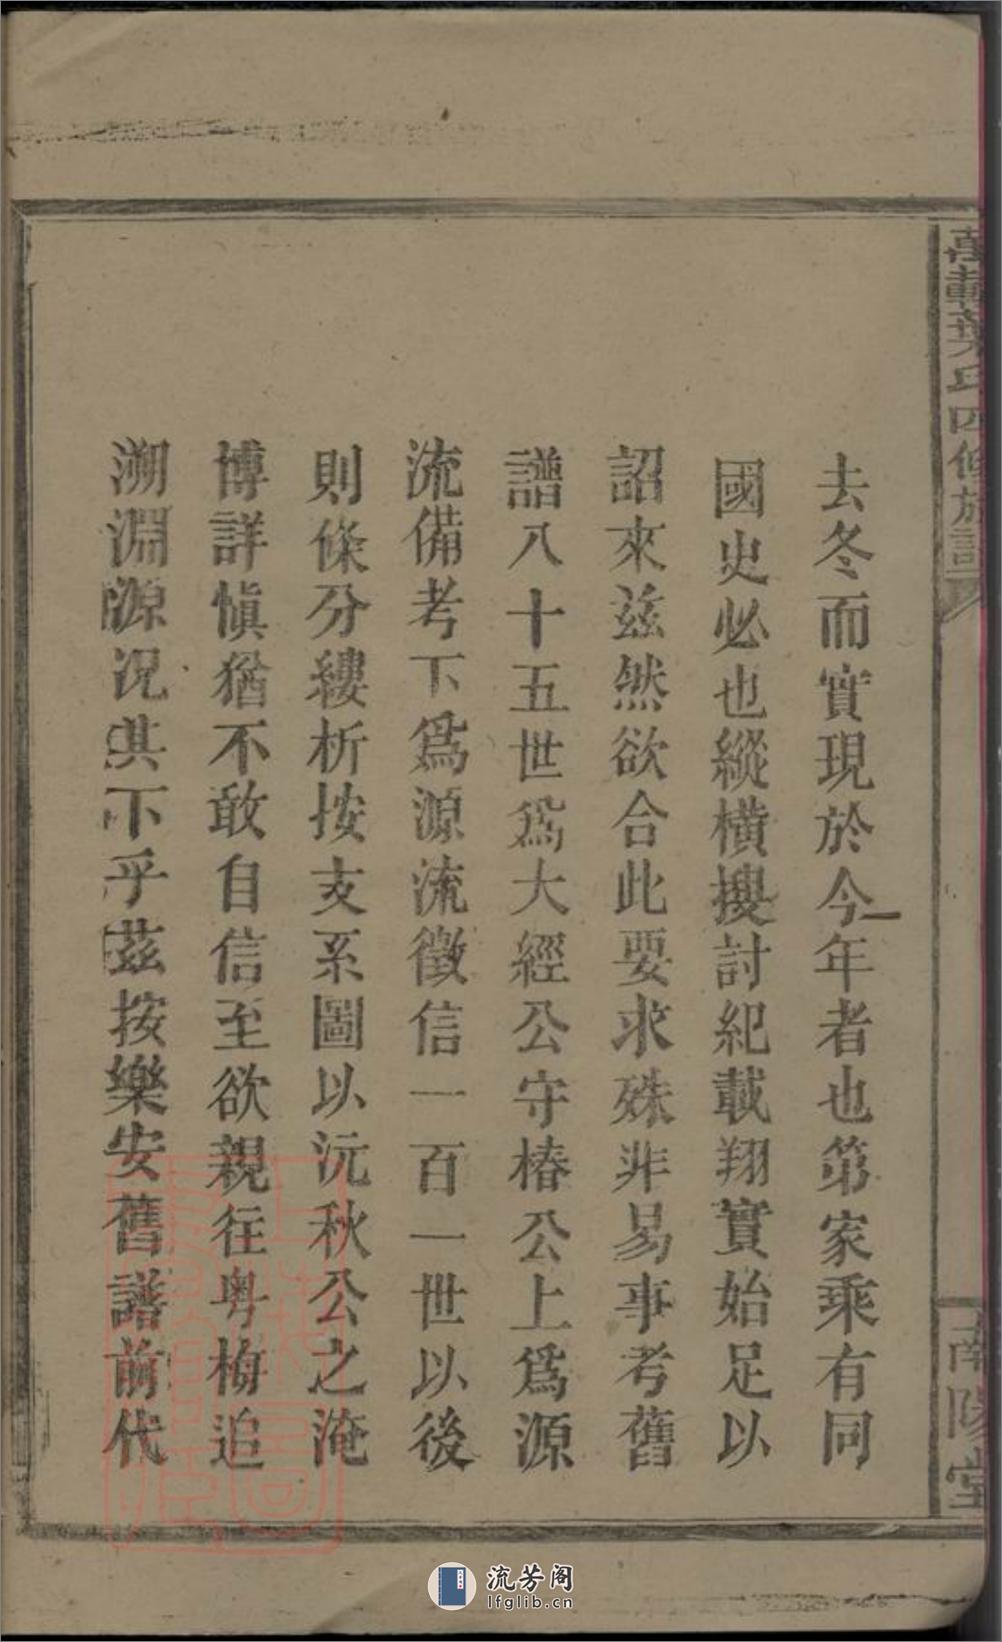 萬載葉氏四修族譜
南陽堂
去冬而實現於今年者也第家乘有同
國史必也縱橫搜討紀載翔實始足以
詔來茲然欲合此要求殊非易事考舊
譜八十五世爲大經公守椿公上爲源
流備考下爲源流徵信一百一世以後
則條分縷析按支系圖以沅秋公之淹
博詳愼猶不敢自信至欲親往粤梅追
溯淵源况其下乎茲按樂安舊譜前代
流芳阁
lfglib.cn